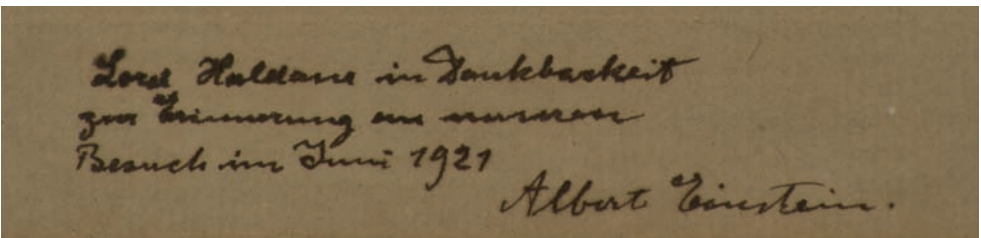 Lord Haldane in Dankbarkeit
zur Erinnerung an unseren
Besuch im Juni 1921
Albert Einstein.